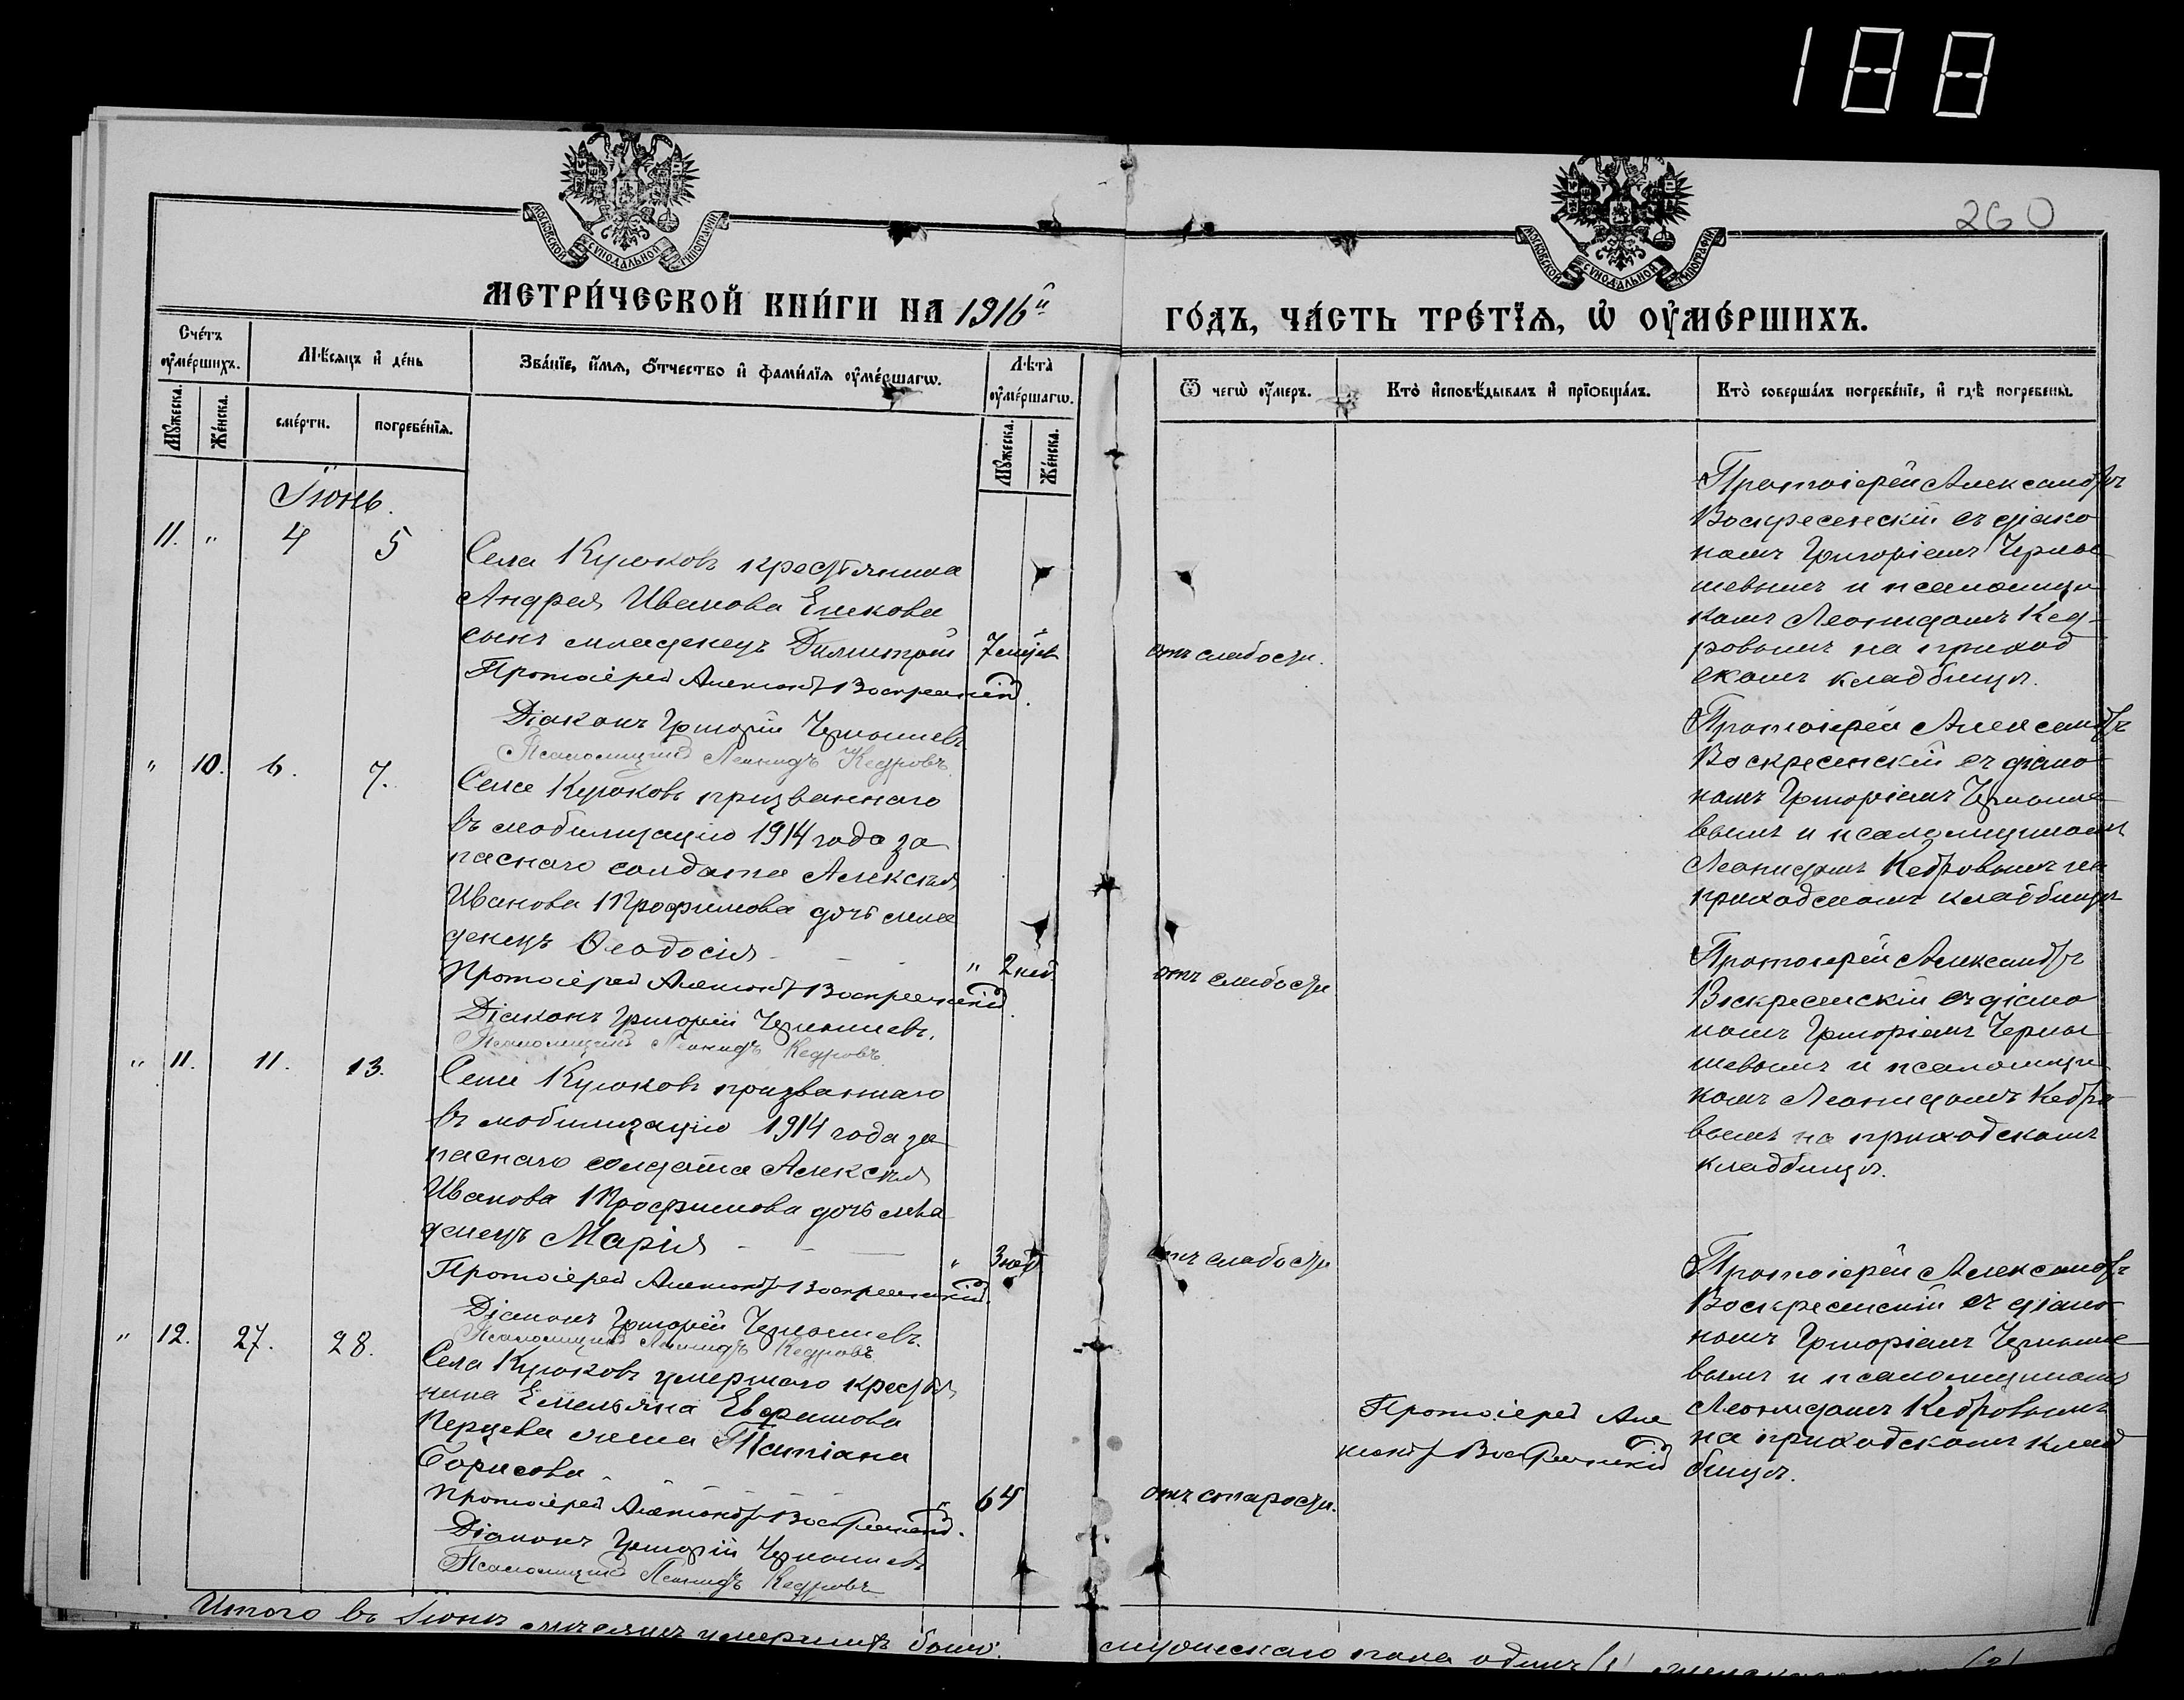 188
260
МОСКОВСКОЙ СѴНОДАЛЬНОЙ ТИПОГРАФІИ
МОСКОВСКОЙ СѴНОДАЛЬНОЙ ТИПОГРАФІИ
МЕТРИ́ЧЕСКОЙ КНИ́ГИ НА 1916й
ГО́ДЪ, ЧА́СТЬ ТРЕ́ТЇѦ, Ѡ҆ ОУ҆МЕ́РШИХЪ.
Сче́тъ оу҆ме́ршихъ.
Мꙋ́жеска.
Же́нска.
Мѣ́сѧцъ и҆ де́нь
сме́рти.
погребе́нїѧ.
Зва́нїе, и҆́мѧ, ѻ҆́тчество и҆ фами́лїѧ оу҆ме́ршагѡ.
Лѣ́та̀ оу҆ме́ршагѡ.
Мꙋ́жеска.
Же́нска.
Ѿ чегѡ̀ оу҆́меръ.
Кто̀ и҆сповѣ́дывалъ и҆ прїѻбща́лъ.
Кто̀ соверша́лъ погребе́нїе, и҆ гдѣ̀ погребены̀.
Іюнь.
11. " 4 5
Села Курюковъ крестьянина
Андрея Иванова Ешкова
сынъ младенецъ Димитрій 7 мѣс
Протоіерей Александръ Воскресенскій.
Діаконъ Григорій Чернышевъ
Псаломщикъ Леонидъ Кедровъ
отъ слабости.
Протоіерей Александръ
Воскресенскій съ діако
номъ Григоріемъ Черны
шевымъ и псаломщи
комъ Леонидомъ Кед-
ровымъ на приход
скомъ кладбищѣ.
" 10. 6. 7.
Села Курюковъ призваннаго
въ мобилизацію 1914 года за
паснаго солдата Алексѣя
Иванова Трофимова дочь мла
денецъ Ѳеодосія " 2 нед.
Протоіерей Александръ Воскресенскій.
Діаконъ Григорій Чернышевъ.
Псаломщикъ Леонидъ Кедровъ
отъ слабости
Протоіерей Александръ
Воскресенскій съ діако
номъ Григоріемъ Черныше
вымъ и псаломщикомъ
Леонидомъ Кедровымъ на
приходскомъ кладбищѣ
" 11. 11. 13.
Села Курюковъ призваннаго
въ мобилизацію 1914 года за
паснаго солдата Алексѣя
Иванова Трофимова дочь мла
денецъ Марія " 3 нед
Протоіерей Александръ Воскресенскій.
Діаконъ Григорій Чернышевъ.
Псаломщикъ Леонидъ Кедровъ
отъ слабости
Протоіерей Александръ
Воскресенскій съ діако
номъ Григоріемъ Черны
шевымъ и псаломщи
комъ Леонидомъ Кедро
вымъ на приходскомъ
кладбищѣ.
" 12. 27. 28.
Села Курюковъ умершаго крестья
нина Емельяна Евфимова
Перцева жена Татіана
Борисова " 64
Протоіерей Александръ Воскресенскій.
Діаконъ Григорій Чернышевъ
Псаломщикъ Леонидъ Кедровъ
отъ старости.
Протоіерей Але
ксандръ Воскресенскій
Протоіерей Александръ
Воскресенскій съ діако
номъ Григоріемъ Черныше
вымъ и псаломщикомъ
Леонидомъ Кедровымъ
на приходскомъ клад
бищѣ.
Итого въ Іюнѣ мѣсяцѣ умершихъ было: мужескаго пола одинъ (1)